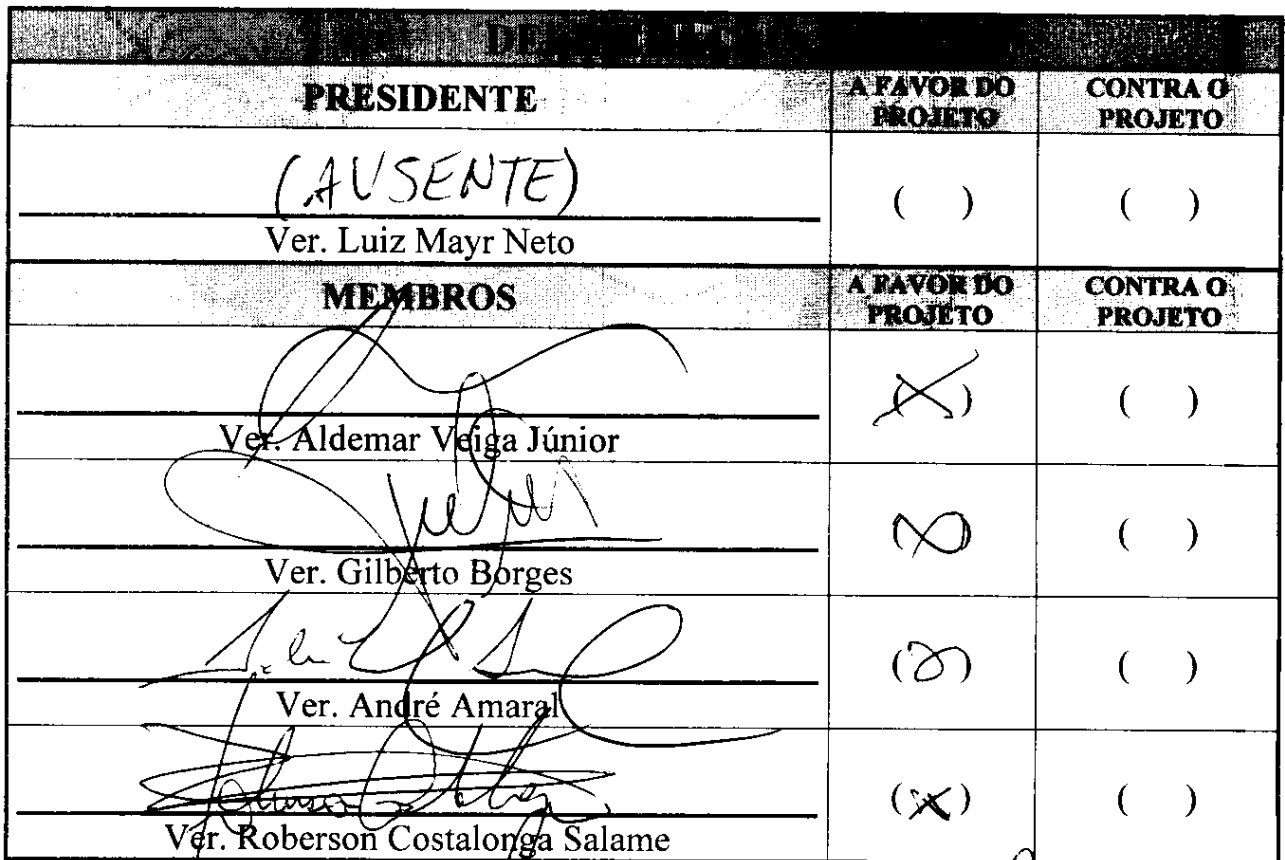 PRESIDENTE
A FAVOR DO PROJETO
CONTRA O PROJETO
(AUSENTE)
( )
( )
Ver. Luiz Mayr Neto
MEMBROS
A FAVOR DO PROJETO
CONTRA O PROJETO
(X)
( )
Ver. Aldemar Veiga Júnior
(X)
( )
Ver. Gilberto Borges
( )
( )
Ver. André Amaral
(X)
( )
Ver. Roberson Costalonga Salame